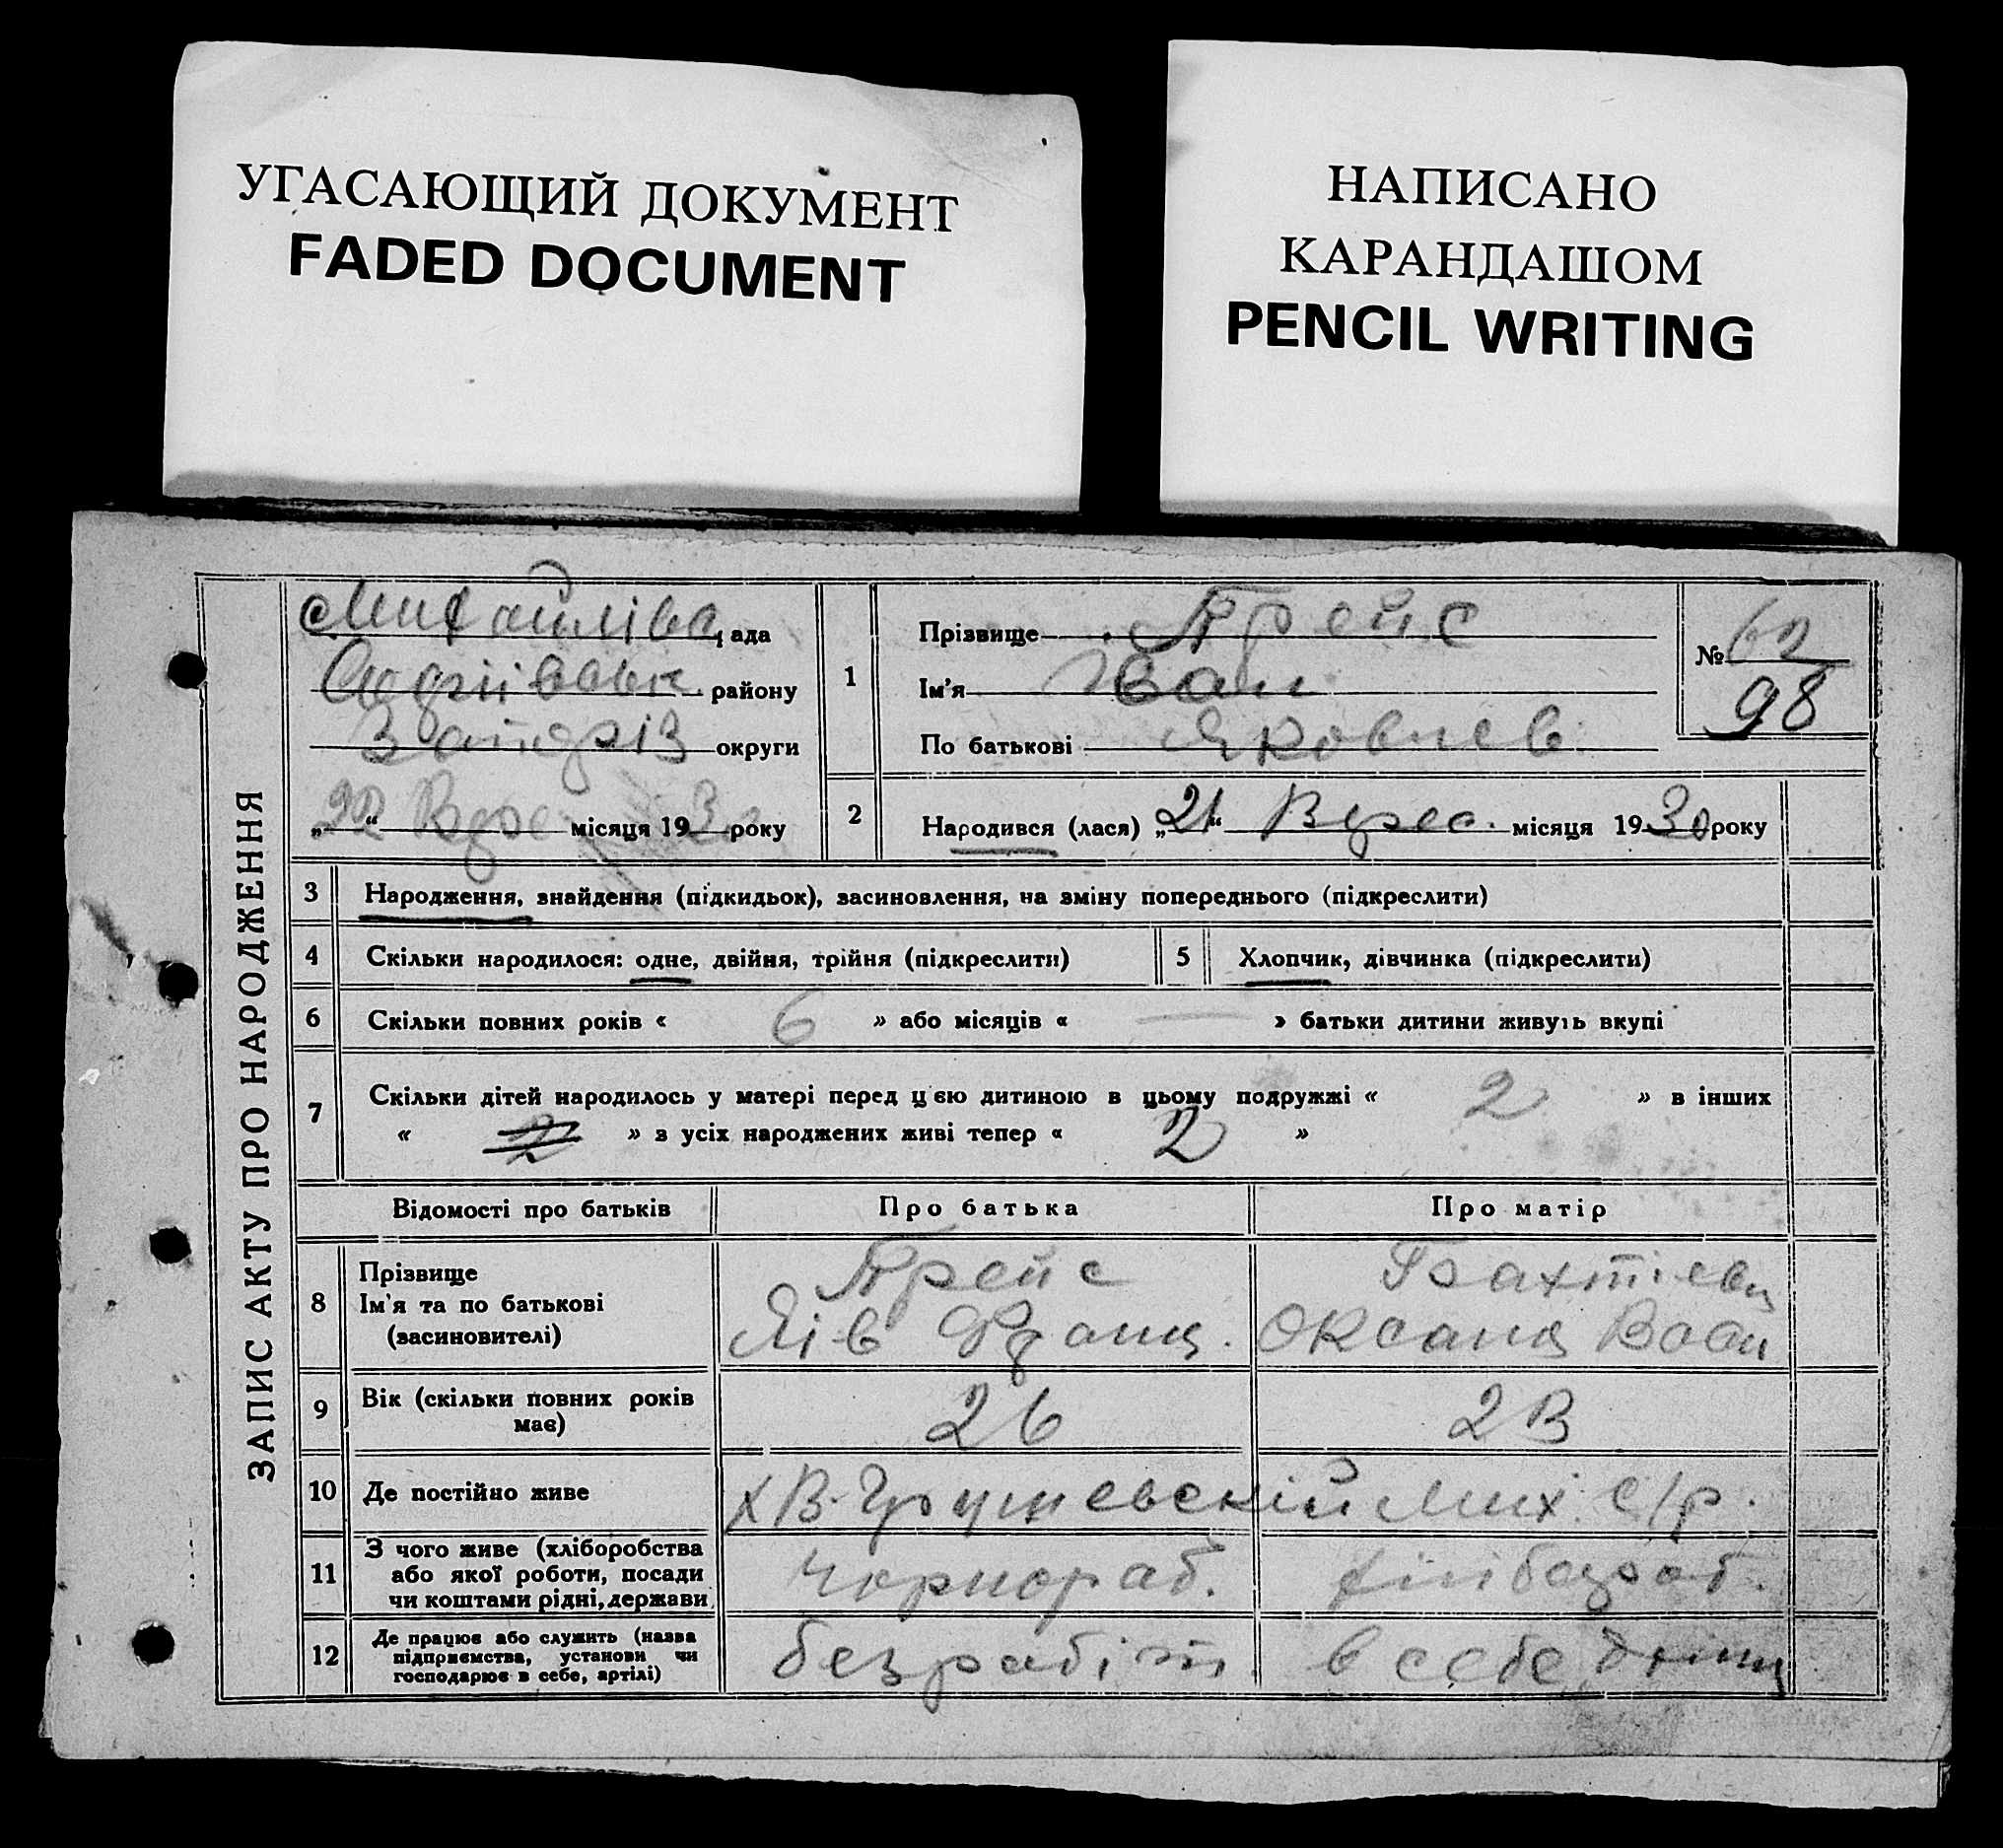 УГАСАЮЩИЙ ДОКУМЕНТ
FADED DOCUMENT
НАПИСАНО
КАРАНДАШОМ
PENCIL WRITING
ЗАПИС АКТУ ПРО НАРОДЖЕННЯ
Михайлівс рада
району
округи
„22“ Верес місяця 1930 року
1
Прізвище Прейс
Ім'я Іван
По батькові Яковлев
№ 62
98
2
Народився (лася) „21“ Верес. місяця 1930 року
3 Народження, знайдення (підкидьок), засиновлення, на зміну попереднього (підкреслити)
4 Скільки народилося: одне, двійня, трійня (підкреслити)
5 Хлопчик, дівчинка (підкреслити)
6 Скільки повних років « 6 » або місяців « — » батьки дитини живуть вкупі
7 Скільки дітей народилось у матері перед цією дитиною в цьому подружжі « 2 » в інших
« » з усіх народжених живі тепер « 2 »
Відомості про батьків Про батька Про матір
8 Прізвище
Ім'я та по батькові
(засиновителі)
Прейс
Яків Франц.
Оксана
9 Вік (скільки повних років
має)
26
10 Де постійно живе
х В-Грушевскій Мих. с/р.
11 З чого живе (хліборобства
або якої роботи, посади
чи коштами рідні, держави
Чорнораб.
12 Де працює або служить (назва
підприємства, установи чи
господарює в себе, артілі)
безрабіт.
в себе дома